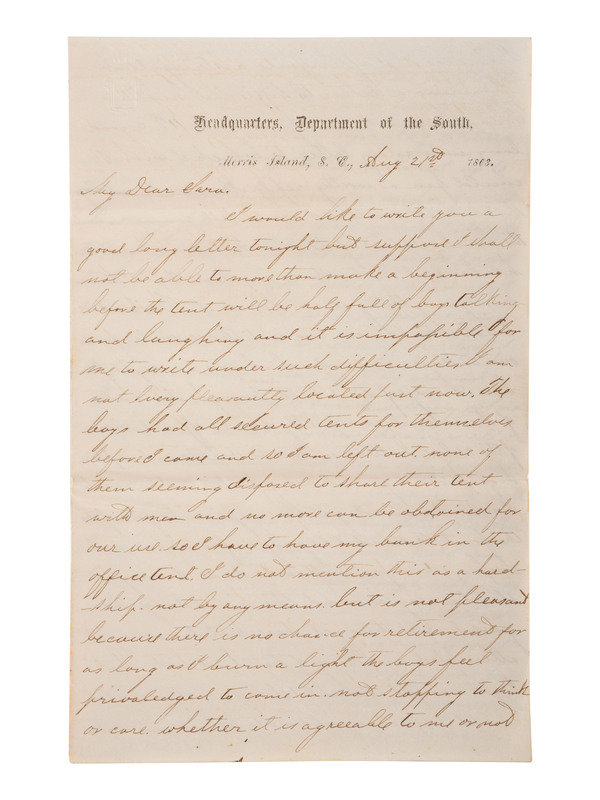 Headquarters, Department of the South,
Morris Island, S. C., Aug 21st 1863.
My Dear Sara.
I would like to write you a
good long letter tonight but suppose I shall
not be able to more than make a beginning
before the tent will be half full of boys talking
and laughing and it is impossible for
me to write under such difficulties I am
not very pleasantly located just now. The
boys had all secured tents for themselves
before I came and so I am left out none of
them seeming disposed to share their tent
with man and no more can be obtained for
our use. so I have to have my bunk in the
office tent. I do not mention this as a hard-
ship. not by any means. but is not pleasant
because there is no chance for retirement for
as long as I burn a light the boys feel
priviledged to come in. not stopping to think
or care. whether it is agreeable to me or not